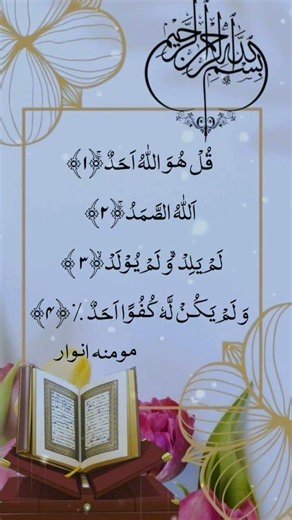 بسم الله الرحمن الرحيم
قُلۡ هُوَ اللّٰهُ اَحَدٌ ۚ﴿۱﴾
اَللّٰهُ الصَّمَدُ ۚ﴿۲﴾
لَمۡ یَلِدۡ ۬ۙ وَ لَمۡ یُوۡلَدۡ ۙ﴿۳﴾
وَ لَمۡ یَکُنۡ لَّهٗ کُفُوًا اَحَدٌ ٪﴿۴﴾
مومنه انوار